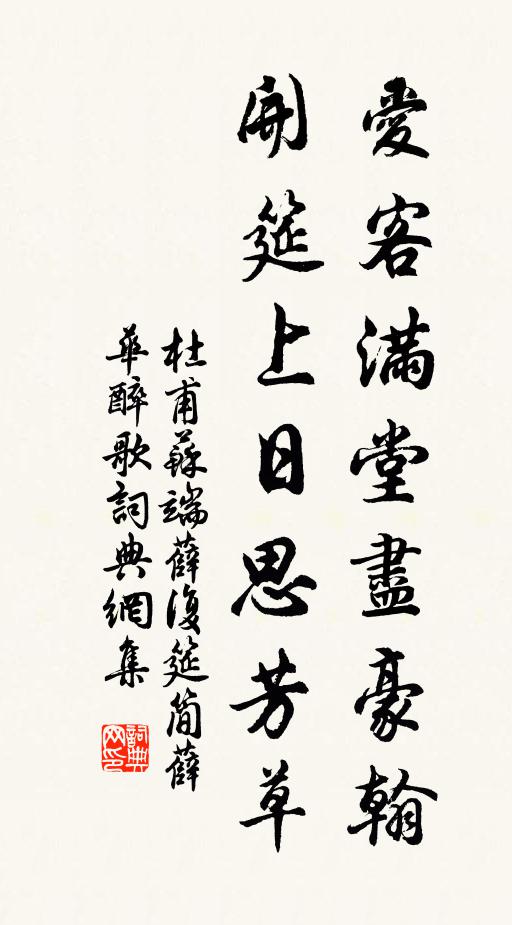 愛客滿堂盡豪翰
開筵上日思芳草
杜甫蘇端薛復筵簡薛
華醉歌詞典網集
詞典网印